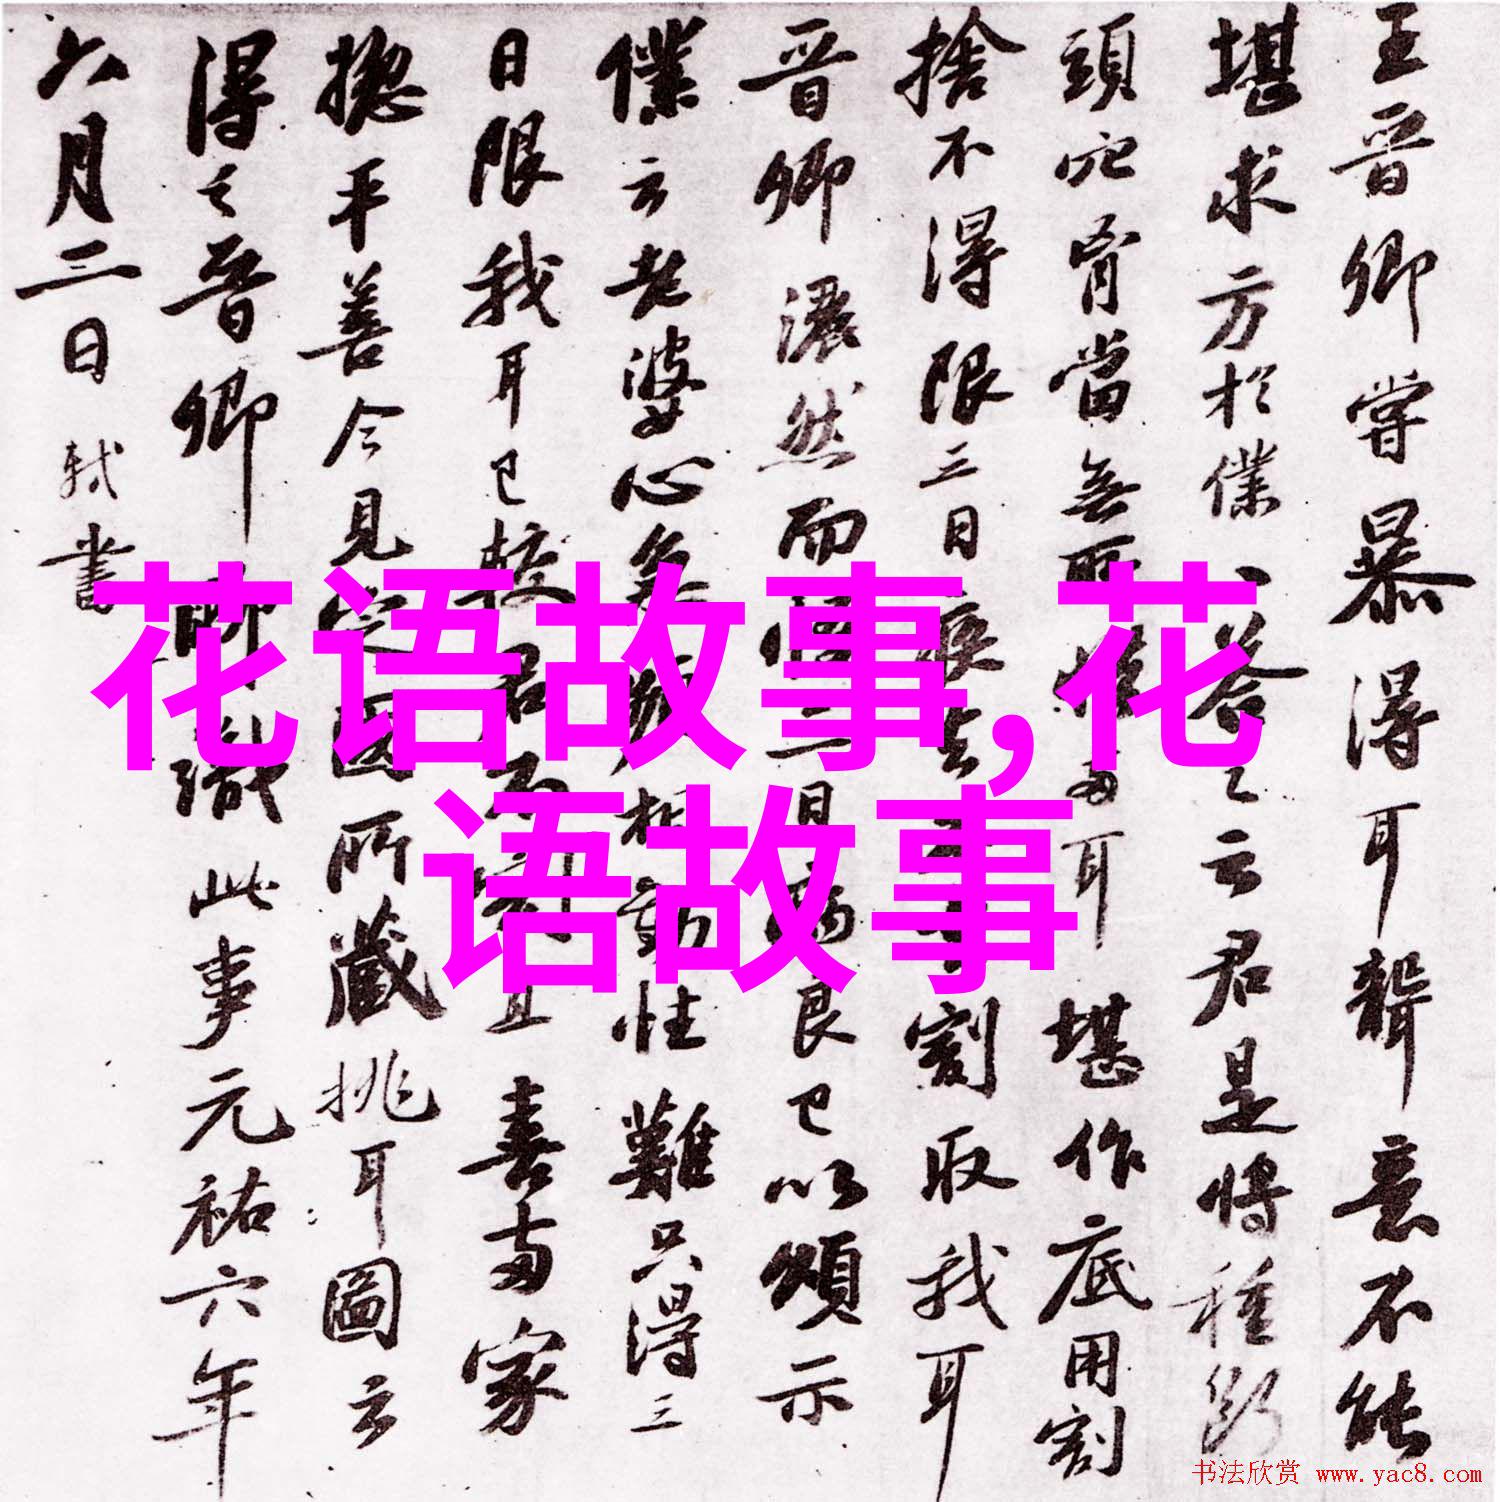 王晉卿嘗暴得耳聾意不能
堪求方於僕、答之云君是將種斷
頭穴胷當無所惜兩耳堪作底用割
捨不得限三日疾去不去割取我耳
晉卿灑然而悟三日病良已以頌示
僕云老婆心急頻相勸性難只得三
日限我耳已較君不割且喜兩家
揔平善今見定國所藏挑耳圖云
得之晉卿聊識此事元祐六年
六月三日軾書
花语故事,花
语故事
书法欣赏 www.yac8.com